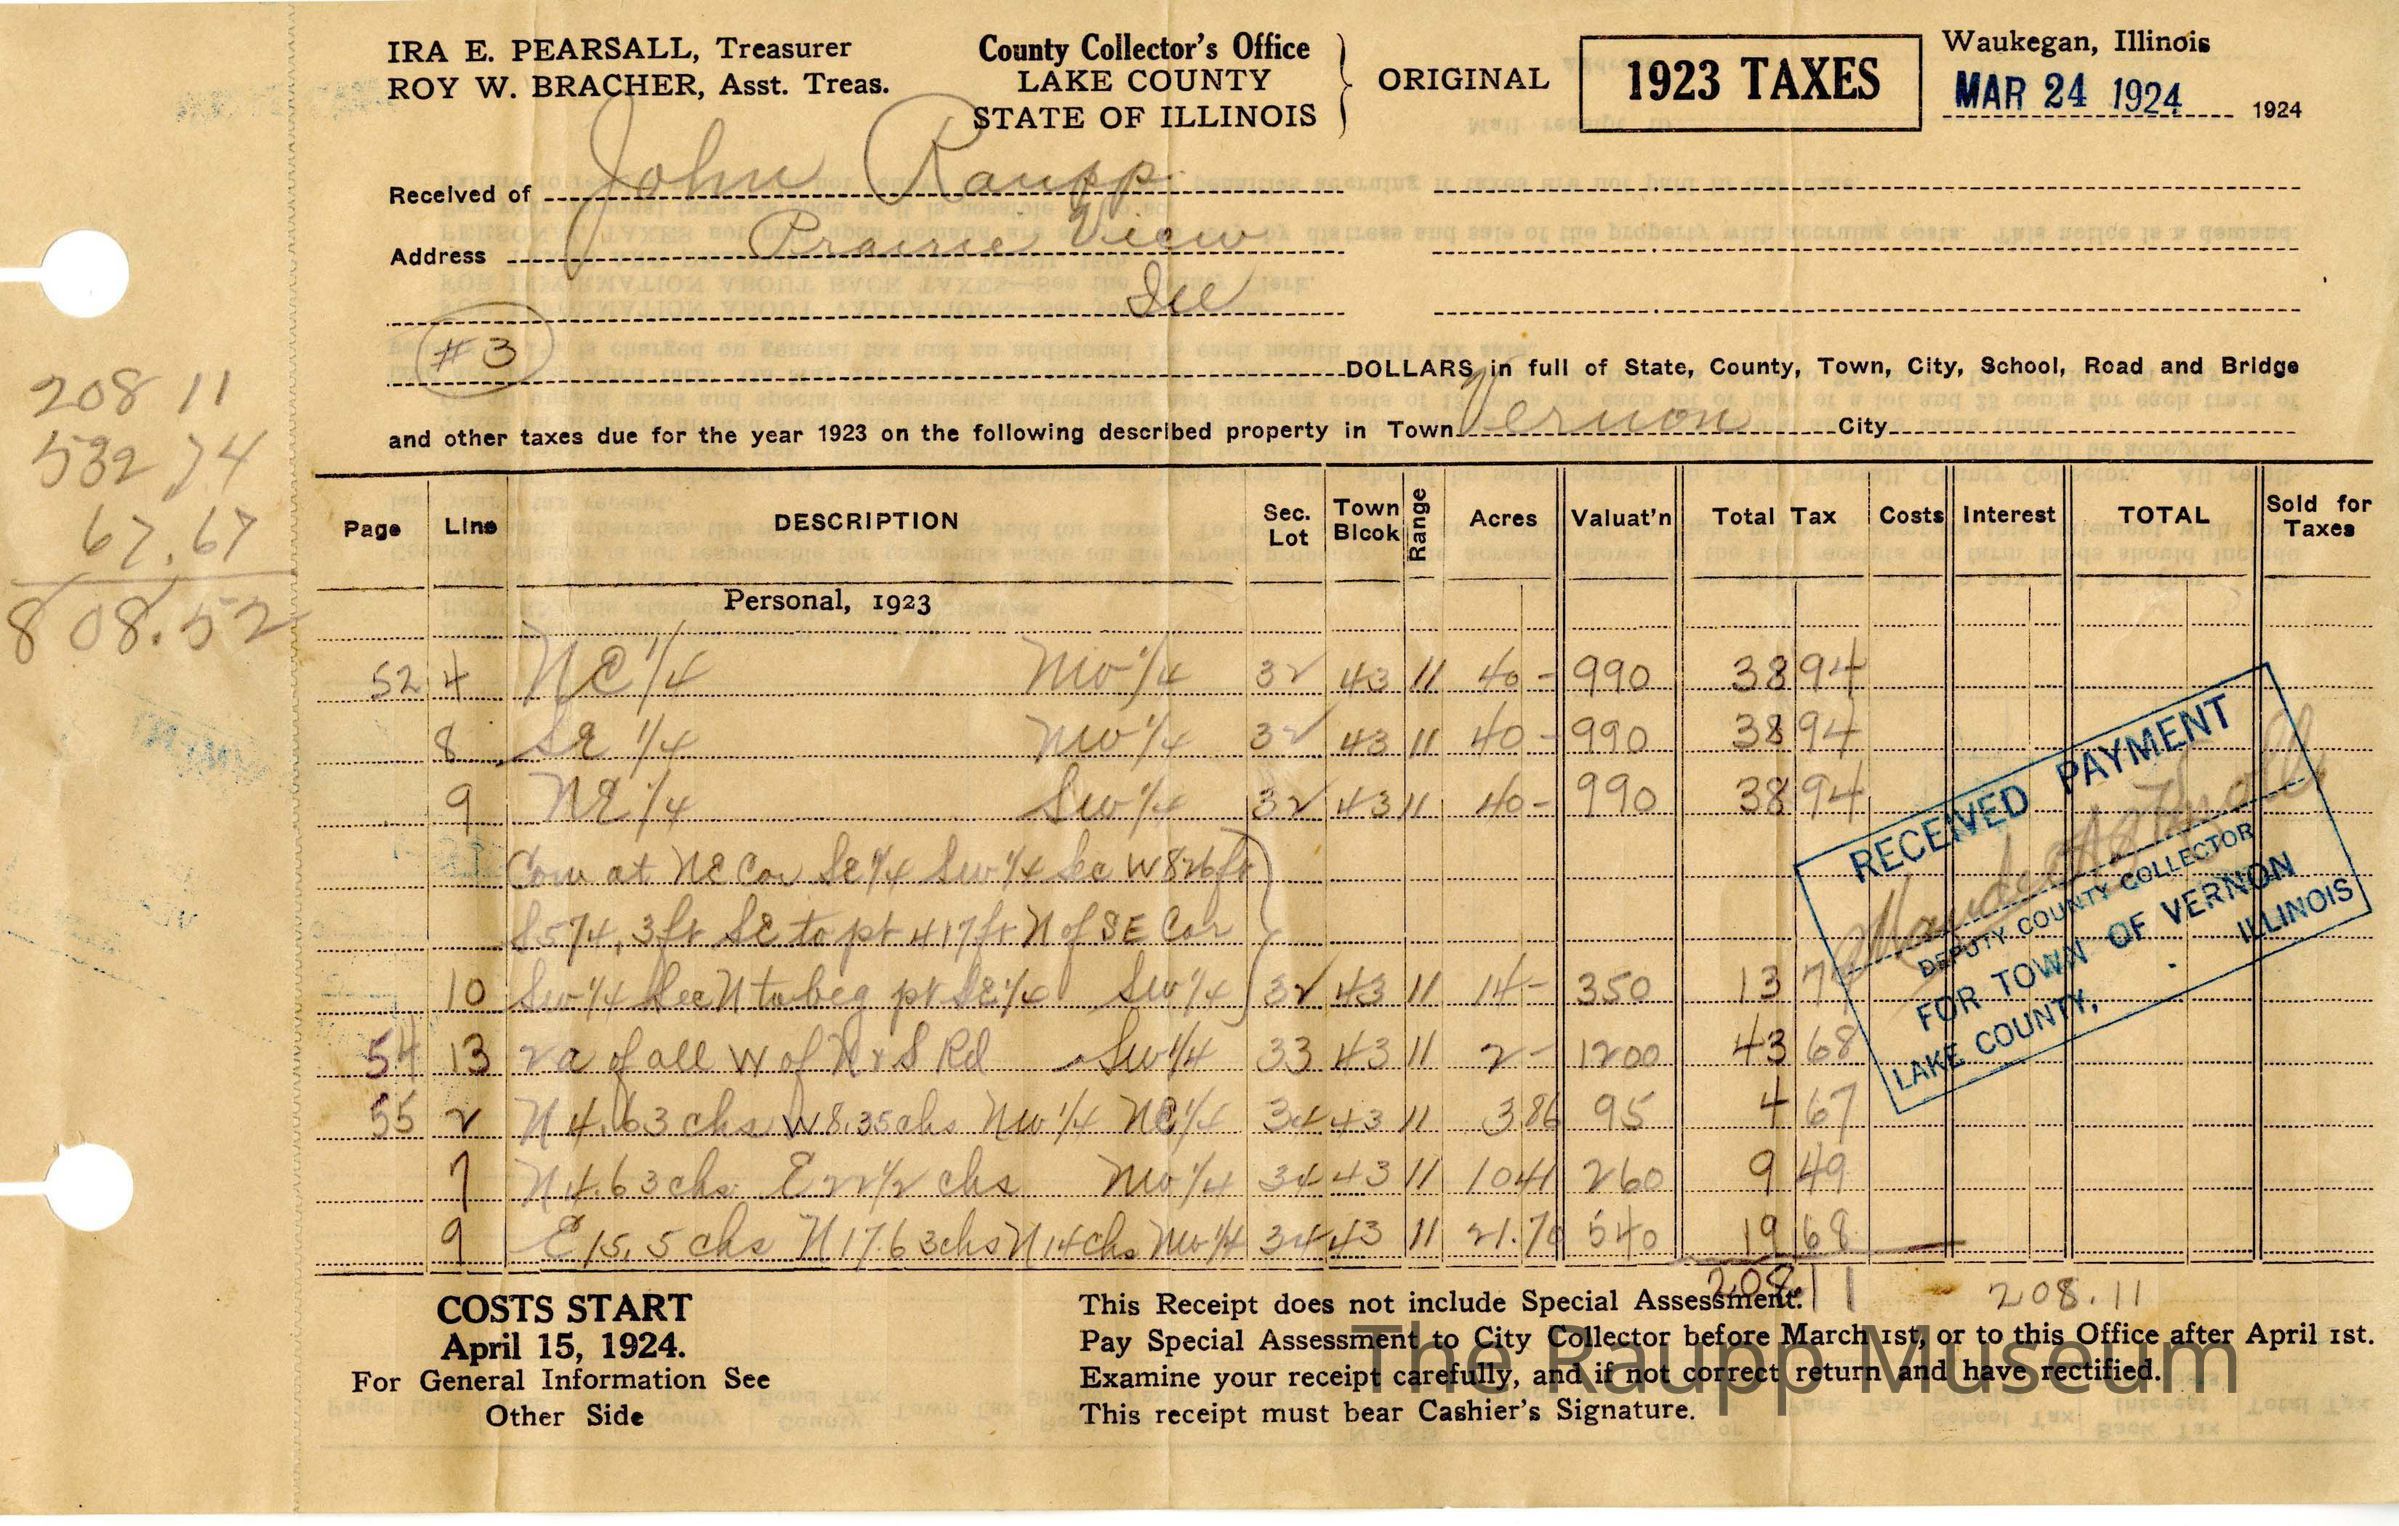 IRA E. PEARSALL, Treasurer
ROY W. BRACHER, Asst. Treas.
County Collector's Office
LAKE COUNTY
STATE OF ILLINOIS
ORIGINAL
1923 TAXES
Waukegan, Illinois
MAR 24 1924 1924
Received of John Raupp
Address Prairie View
Ill
# 3
DOLLARS in full of State, County, Town, City, School, Road and Bridge
and other taxes due for the year 1923 on the following described property in Town Vernon City
208 11
532 74
67.67
808.52
Page Line DESCRIPTION Sec. Lot Town Blcok Range Acres Valuat'n Total Tax Costs Interest TOTAL Sold for Taxes
Personal, 1923
52 4 NE 1/4 NW 1/4 32 43 11 40 - 990 38 94
8 SE 1/4 NW 1/4 32 43 11 40 - 990 38 94
9 NE 1/4 SW 1/4 32 43 11 40 - 990 38 94
Com at NE Cor SE 1/4 SW 1/4 Sec W 826 ft
S 574.3 ft SE to pt 417 ft N of SE Cor
10 SW 1/4 Sec N to beg pt SE 1/4 SW 1/4 32 43 11 14 - 350 13 77
54 13 2 a of all W of N & S Rd SW 1/4 33 43 11 2 - 1200 43 68
55 2 N 4.63 chs W 8.35 chs NW 1/4 NE 1/4 34 43 11 3.86 95 4 67
7 N 4.63 chs E 22 1/2 chs NW 1/4 34 43 11 10 41 260 9 49
9 E 15.5 chs N 17.63 chs N 14 chs NW 1/4 34 43 11 21.70 540 19 68
208.11 208.11
RECEIVED PAYMENT
DEPUTY COUNTY COLLECTOR
FOR TOWN OF VERNON
LAKE COUNTY, ILLINOIS
COSTS START
April 15, 1924.
For General Information See
Other Side
This Receipt does not include Special Assessment.
Pay Special Assessment to City Collector before March 1st, or to this Office after April 1st.
Examine your receipt carefully, and if not correct return and have rectified.
This receipt must bear Cashier's Signature.
The Raupp Museum